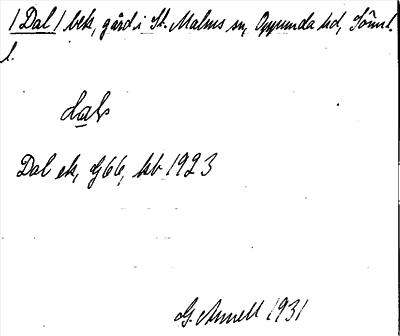 / Dal / bek, gård i St. Malms sn, Oppunda hd, Sörml.
l.
dals
Dal ek, G66, kb 1923
G. Annell 1931